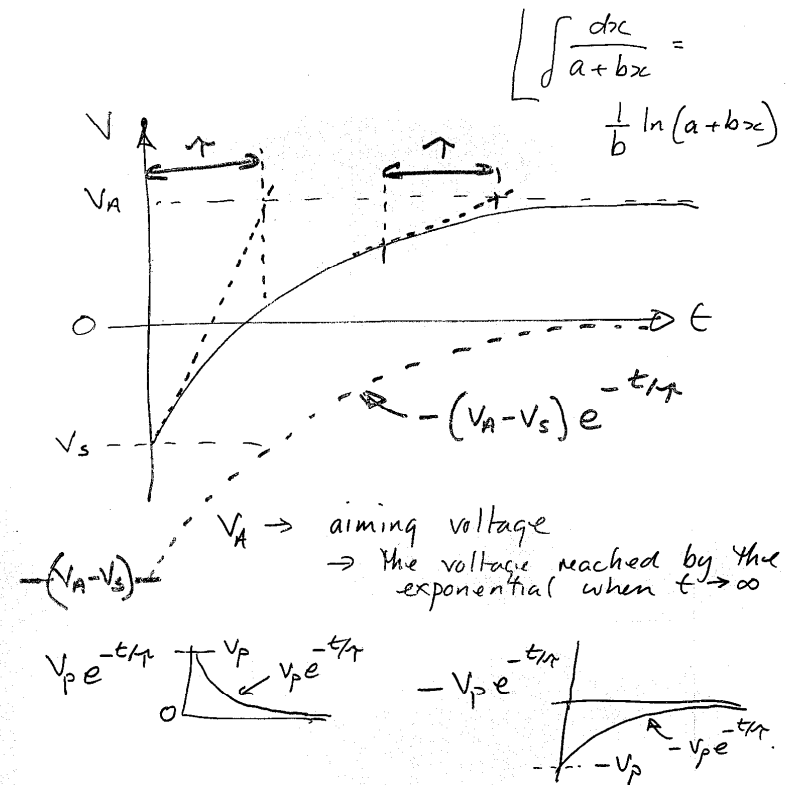 ∫ dx/(a+bx) =
1/b ln(a+bx)
V
τ
τ
V_A
0
t
−(V_A−V_S)e^−t/τ
V_S
V_A → aiming voltage
−(V_A−V_S)
→ the voltage reached by the
exponential when t→∞
V_p e^−t/τ
V_p
V_p e^−t/τ
0
−V_p e^−t/τ
−V_p e^−t/τ.
−V_p